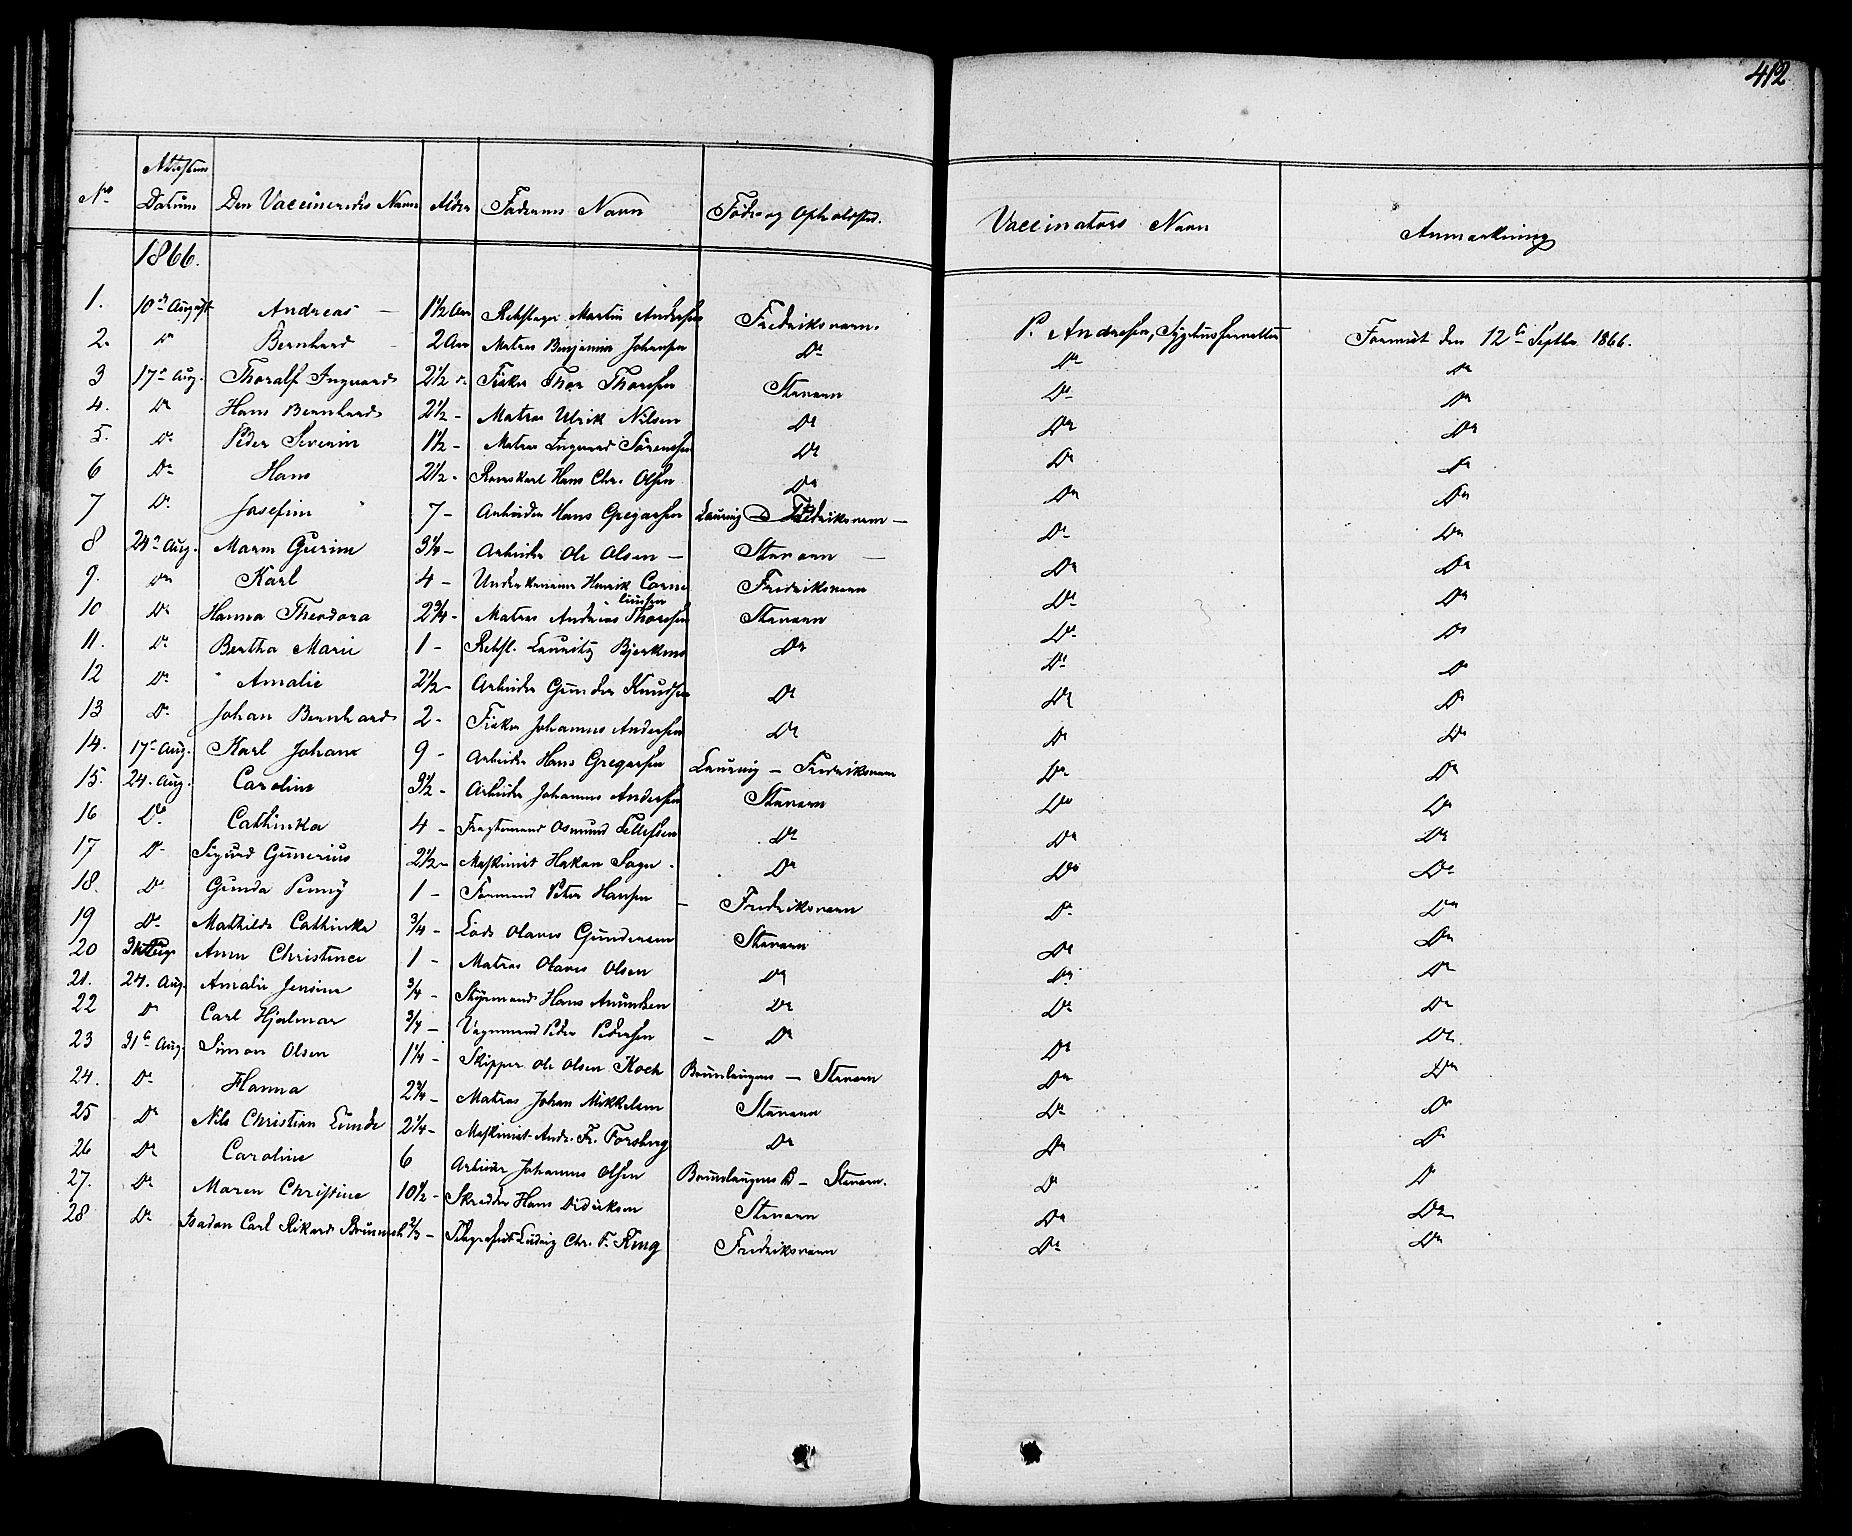 412
No Attestens Datum Den Vaccineredes Navn Alder Faderens Navn Føde og Opholdsted. Vaccinators Navn Anmærkning
1866.
1. 10de August Andreas 1 1/2 Aar Rebslager Martin Andersen Fredriksværn. P. Andresen, Formist den 12te Septbr. 1866.
2. Do Bernhard 2 Aar Matros Benjamin Johansen Do Do Do
3 17de Aug. Thoralf Ingvard 2 1/2 Fisker Thor Thorsen Staværn Do Do
4. Do Hans Bernhard 2 1/2 - Matros Ulrik Nilsen Do Do Do
5. Do Peder Severin 1 1/2 - Matros Ingvard Sørensen Do Do Do
6 Do Hans 2 1/2 - Hans Chr. Olsen Do Do Do
7 Do Josefine 7 - Arbeider Hans Gregersen Laurvig Fredriksværn - Do Do
8 24de Aug. Maren Gurine 3 1/4 - Arbeider Ole Olsen - Staværn - Do Do
9. Do Karl 4 - Underkanoner Henrik Corneliussen Fredriksværn Do Do
10 Do Hanna Theodora 2 3/4 - Matros Andreas Thorsen Staværn Do Do
11. Do Bertha Marie 1 - Rebsl. Lauritz Bjerknes Do Do Do
12 Do Amalie 2 1/2 - Arbeider Gunder Knudsen Do Do Do
13 Do Johan Bernhard 2 - Fisker Johannes Andersen Do Do Do
14. 17de Aug. Karl Johan 9 - Arbeider Hans Gregersen Laurvig - Fredriksværn Do Do
15. 24. Aug. Caroline 3 1/2 - Arbeider Johannes Andersen Staværn Do Do
16 Do Cathinka 4 - Fragtemand Osmund Tellefsen Do Do Do
17 Do Sigurd Gunerius 2 1/2 - Maskinist Hakon Sagn. Do Do Do
18. Do Gunda Penny 1 - Formand Peter Hansen - Fredriksværn Do Do
19 Do Mathilde Cathinka 3/4 - Lods Olaves Gundersen Staværn Do Do
20 Ann Christine 1 - Matros Olaves Olsen Do Do Do
21. 24. Aug. Amalie Jensine 3/4 - Styrmand Hans Amundsen Do Do Do
22 Do Carl Hjalmar 3/4 - Vognmand Peder Pedersen - Do Do Do
23 31te Aug. Simon Olsen 1 1/4 - Skipper Ole Olsen Koch Brunlaugnes - Staværn Do Do
24. Do Hanna 2 3/4 - Matros Johan Mikkelsen Staværn Do Do
25 Do Nils Christian Lunde 2 1/4 - Maskinist Andr. Fr. Forsberg Do Do Do
26 Do Caroline 6 Arbeider Johannes Olsen Brunlaugnes - Staværn. Do Do
27. Do Maren Christine 10 1/2 - Skredder Hans Didriksen Staværn Do Do
28 Do Carl Rikard Brünnich 2/3 - Telegrafist Ludvig Chr. F. Ring Fredriksværn Do Do